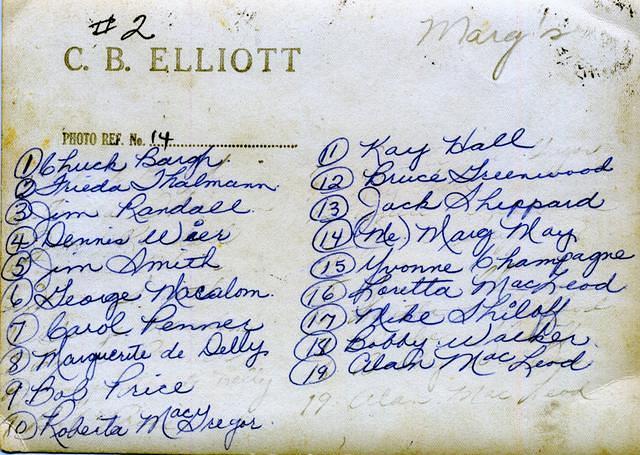 #2
Marg's
C. B. ELLIOTT
PHOTO REF. No. 14
1 Chuck Bargh
2 Frieda Thalmann
3 Jim Randall
4 Dennis Wier
5 Jim Smith
6 George Macalom.
7 Carol Penner
8 Marguerite de Delly
9 Bob Price
10 Roberta MacGregor
11 Kay Hall
12 Bruce Greenwood
13 Jack Sheppard
14 (Me) Marg May
15 Yvonne Champagne
16 Loretta MacLeod
17 Mike Shiloff
18 Bobby Walker
19 Alan MacLeod
19 Alan MacLeod